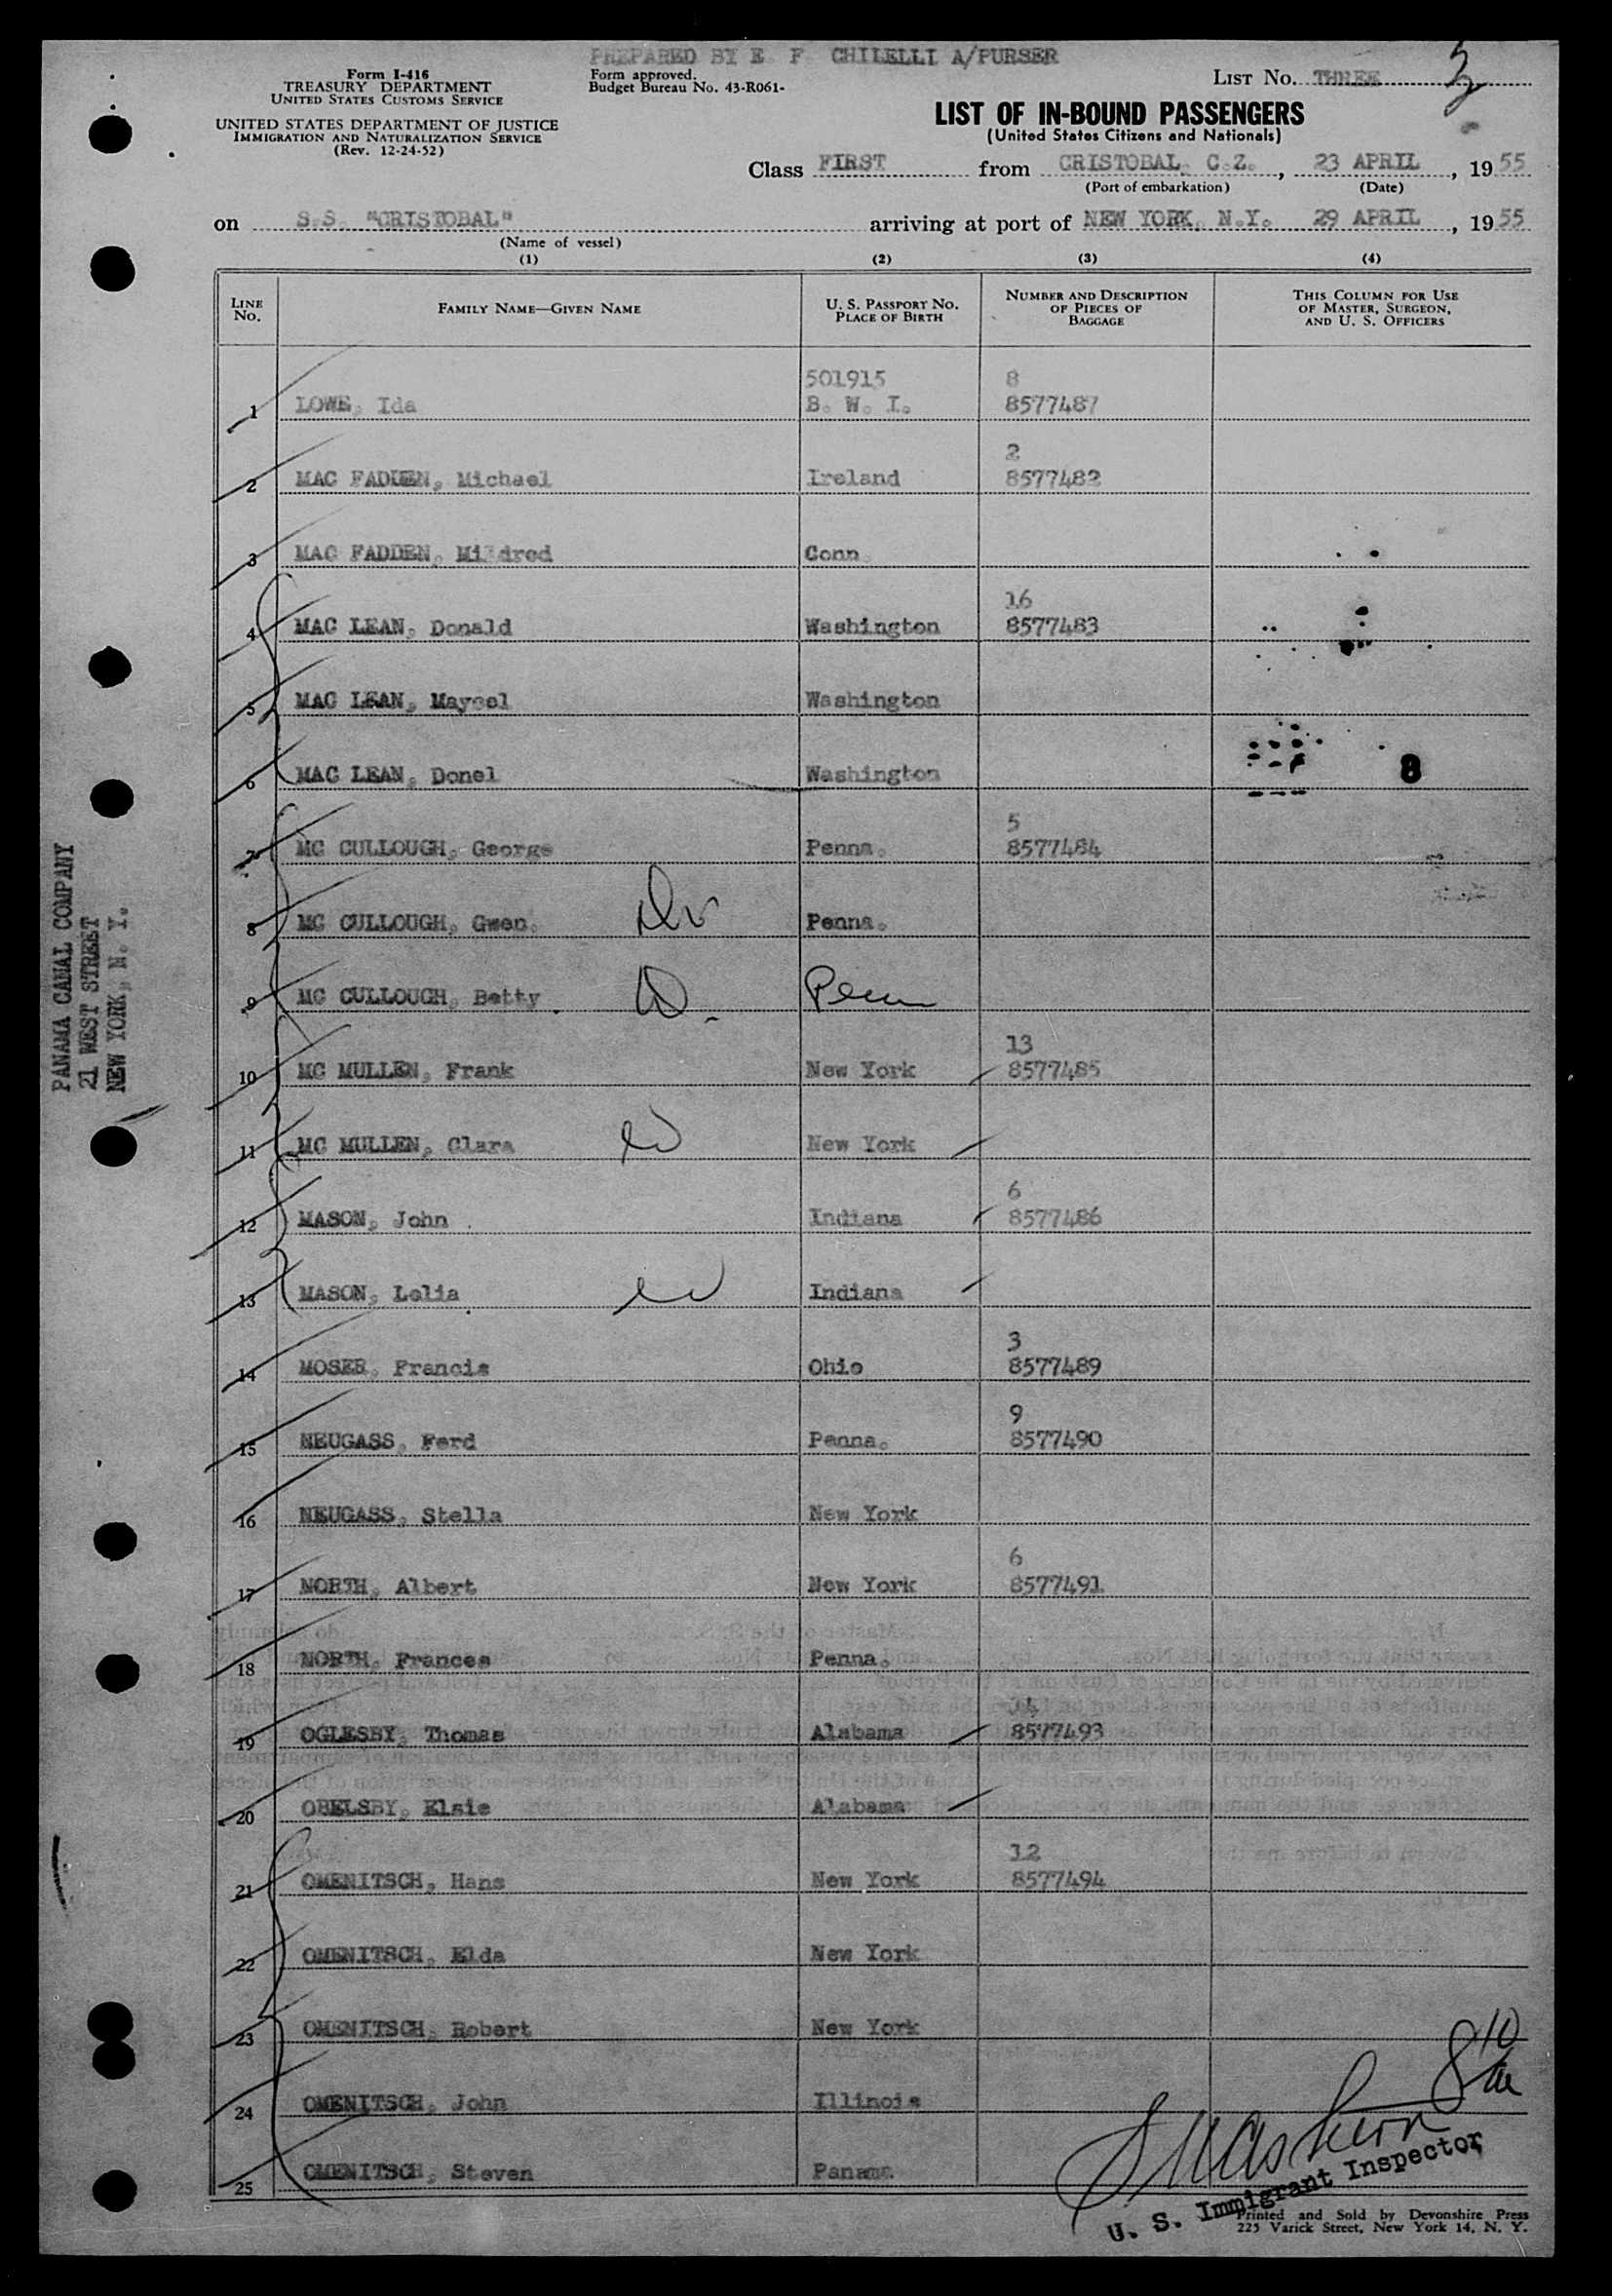 PREPARED BY E. F. CHILELLI A/PURSER
Form I-416
TREASURY DEPARTMENT
UNITED STATES CUSTOMS SERVICE
UNITED STATES DEPARTMENT OF JUSTICE
IMMIGRATION AND NATURALIZATION SERVICE
(Rev. 12-24-52)
Form approved.
Budget Bureau No. 43-R061-
LIST NO. THREE 3
LIST OF IN-BOUND PASSENGERS
(United States Citizens and Nationals)
Class FIRST from CRISTOBAL, C.Z., 23 APRIL, 1955
(Port of embarkation) (Date)
on S.S. "CRISTOBAL" arriving at port of NEW YORK, N.Y. 29 APRIL, 1955
(Name of vessel)
(1) (2) (3) (4)
LINE NO. FAMILY NAME—GIVEN NAME U. S. PASSPORT NO. PLACE OF BIRTH NUMBER AND DESCRIPTION OF PIECES OF BAGGAGE THIS COLUMN FOR USE OF MASTER, SURGEON, AND U. S. OFFICERS
501915 8
1 LOWE, Ida B. W. I. 8577487
2
2 MAC FADDEN, Michael Ireland 8577482
3 MAC FADDEN, Mildred Conn.
16
4 MAC LEAN, Donald Washington 8577483
5 MAC LEAN, Maysel Washington
6 MAC LEAN, Donel Washington 8
5
7 MC CULLOUGH, George Penna. 8577484
8 MC CULLOUGH, Gwen. Penna.
9 MC CULLOUGH, Betty Penn
13
10 MC MULLEN, Frank New York 8577485
11 MC MULLEN, Clara New York
6
12 MASON, John Indiana 8577486
13 MASON, Lelia Indiana
3
14 MOSER, Francis Ohio 8577489
9
15 NEUGASS, Ferd Penna. 8577490
16 NEUGASS, Stella New York
6
17 NORTH, Albert New York 8577491
18 NORTH, Frances Penna.
14
19 OGLESBY, Thomas Alabama 8577493
20 OBELSBY, Elsie Alabama
12
21 OMENITSCH, Hans New York 8577494
22 OMENITSCH, Elda New York
23 OMENITSCH, Robert New York
24 OMENITSCH, John Illinois
25 OMENITSCH, Steven Panama
U. S. Immigrant Inspector
Printed and Sold by Devonshire Press
225 Varick Street, New York 14, N. Y.
PANAMA CANAL COMPANY
21 WEST STREET
NEW YORK, N. Y.